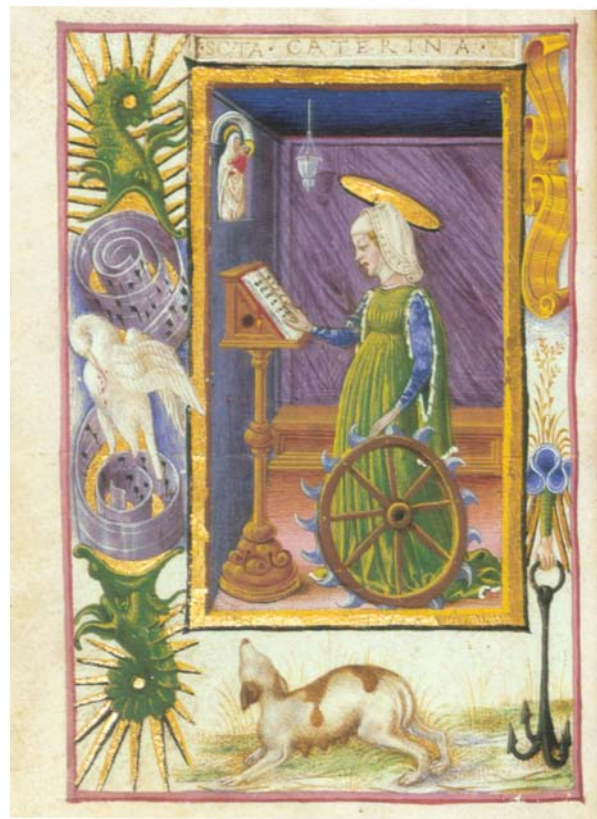 ·SCTA· CATERINA·